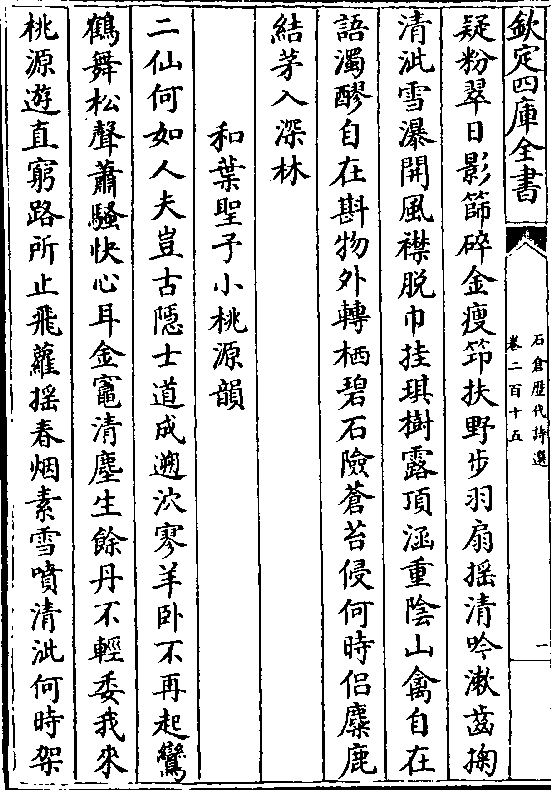 欽定四庫全書
石倉歴代詩選
卷二百十五
一
疑粉翠日影篩碎金瘦笻扶野步羽扇揺清吟漱齒掬
清泚雪瀑開風襟脱巾挂琪樹露頂涵重隂山禽自在
語濁醪自在斟物外轉栖碧石險蒼苔侵何時侣麋鹿
結茅入深林
和葉聖予小桃源韻
二仙何如人夫豈古隠士道成遡泬寥羊卧不再起鸞
鶴舞松聲蕭騷快心耳金竈清塵生餘丹不輕委我來
桃源遊直窮路所止飛蘿揺春烟素雪噴清泚何時架